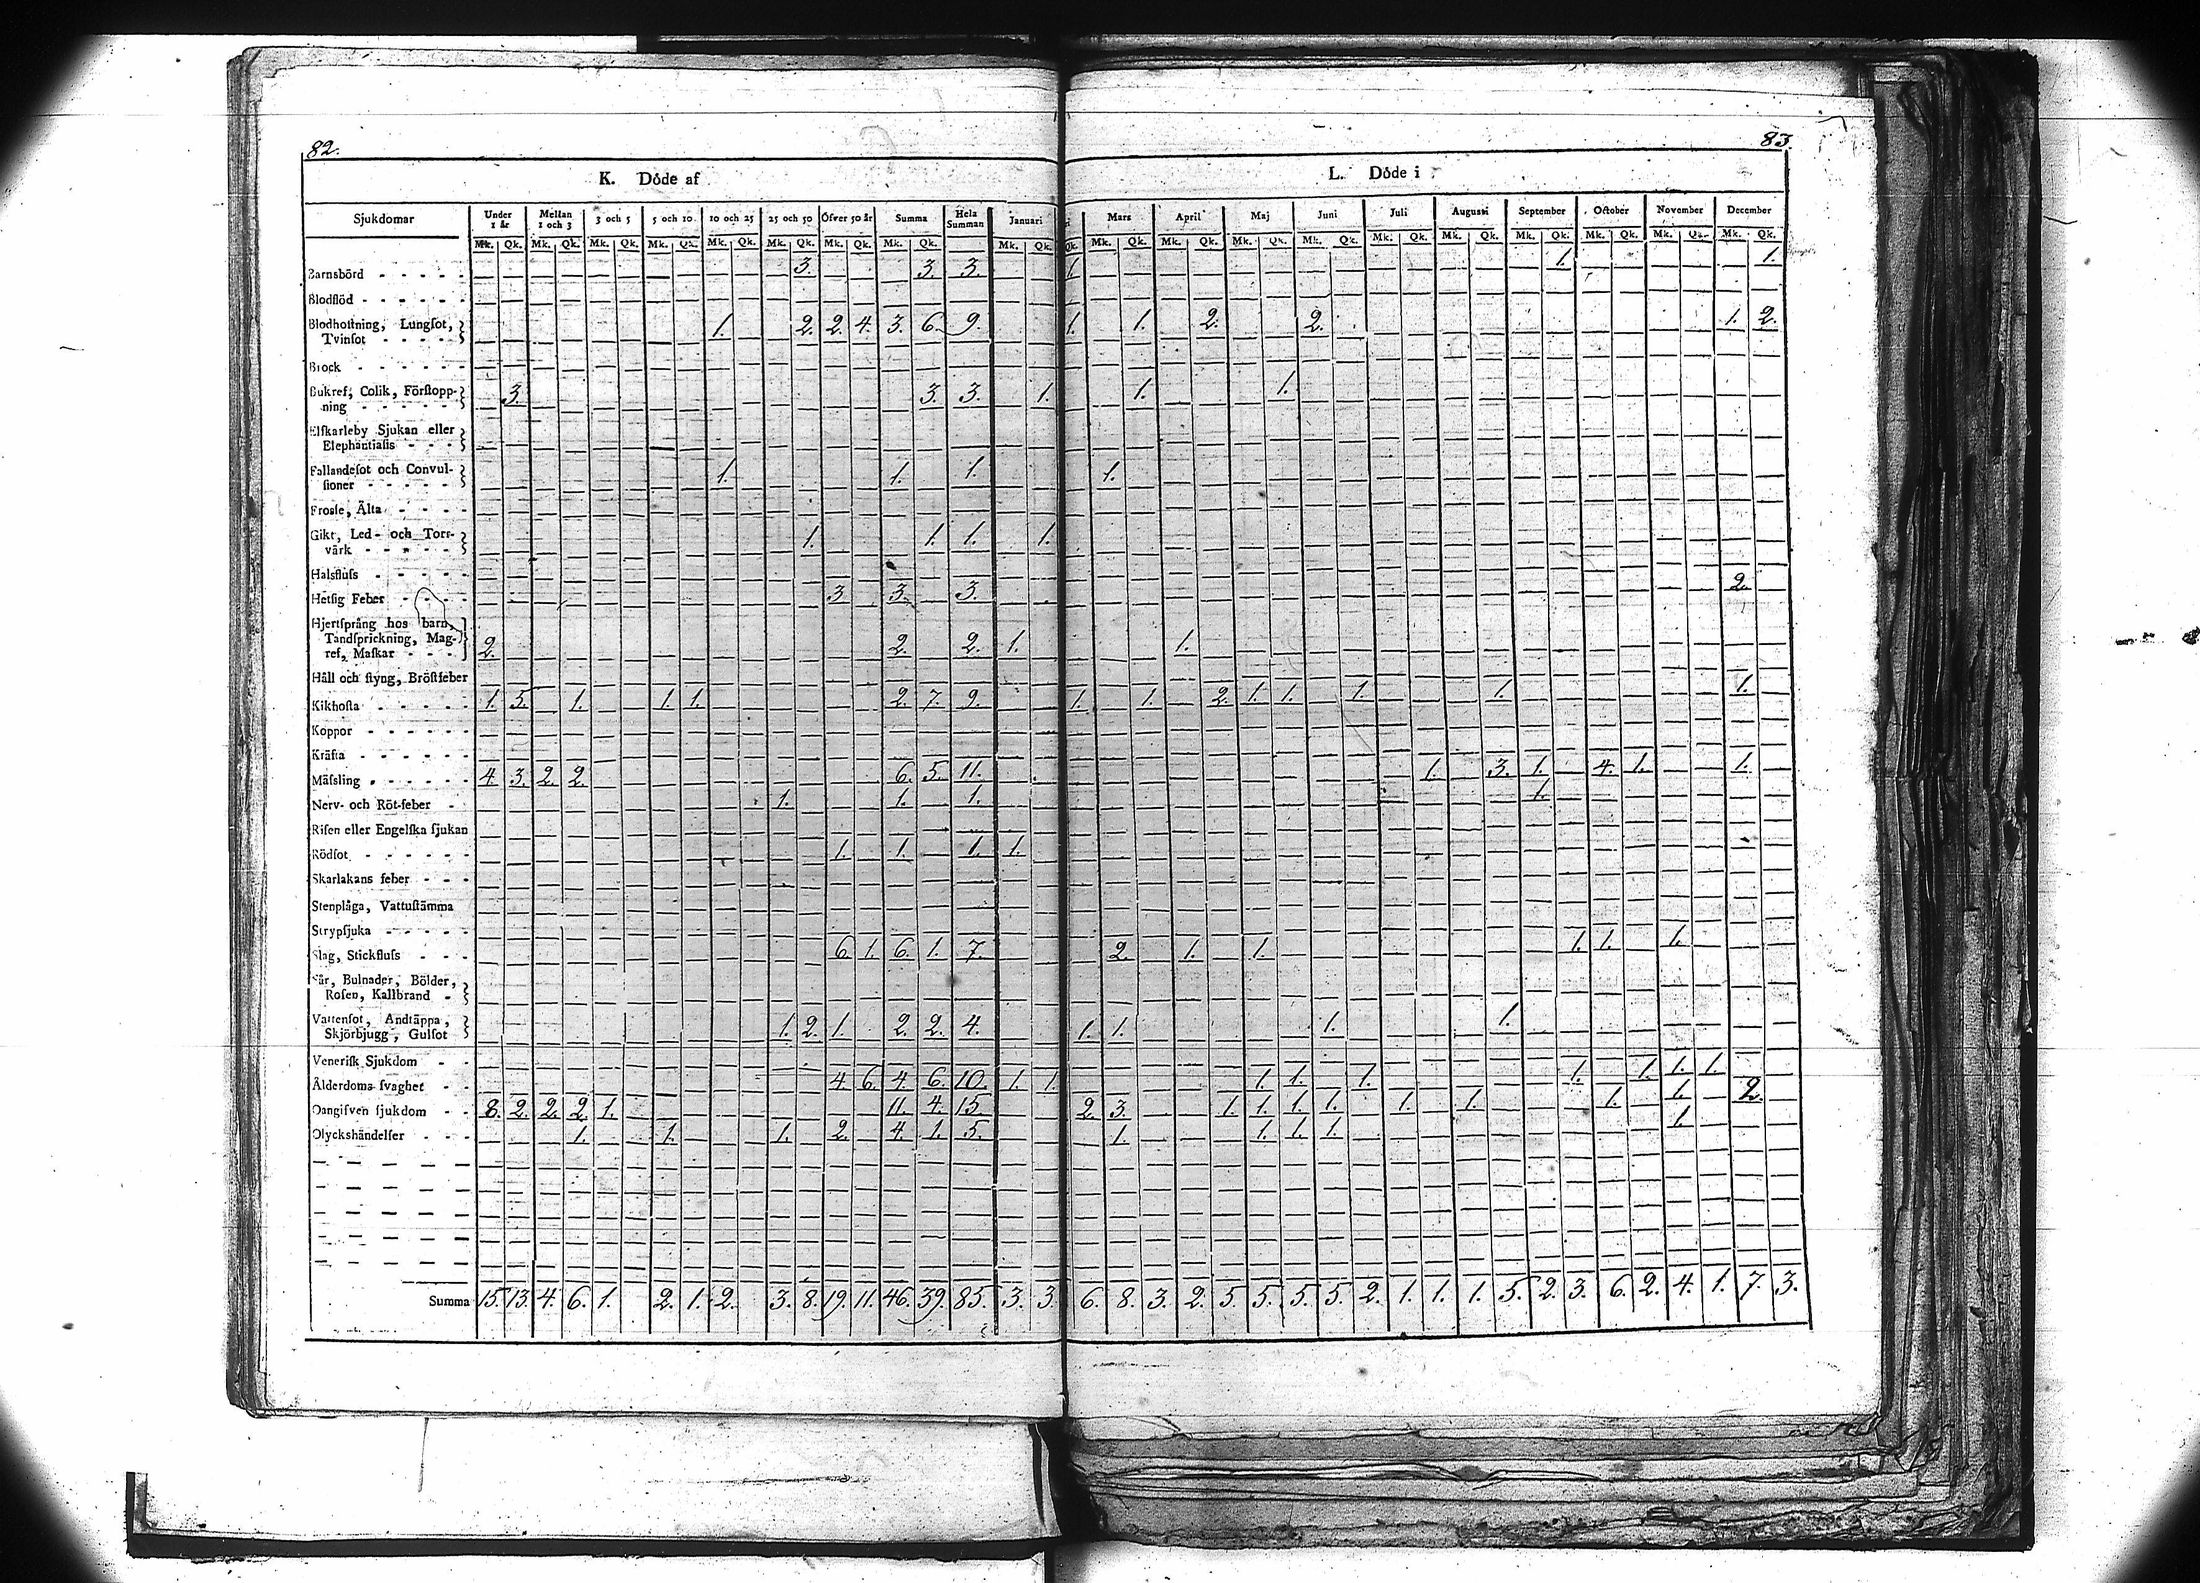 82.
K. Döde af
Sjukdomar Under 1 år Mellan 1 och 3 3 och 5 5 och 10 10 och 25 25 och 50 Öfver 50 år Summa Hela Summan Januari
Mk. Qk. Mk. Qk. Mk. Qk. Mk. Qk. Mk. Qk. Mk. Qk. Mk. Qk. Mk. Qk. Mk. Qk.
Barnsbörd 3. 3. 3.
Blodflöd
Blodhostning, Lungsot, Tvinsot 1. 2. 2. 4. 3. 6. 9.
Brock
Bukref, Colik, Förstoppning 3. 3. 3. 1.
Elfkarleby Sjukan eller Elephantiasis
Fallandesot och Convulsioner 1. 1. 1.
Frossa, Älta
Gikt, Led- och Torrvärk 1. 1. 1. 1.
Halsfluss
Hetsig Feber 3 3. 3.
Hjertsprång hos barn, Tandsprickning, Magref, Maskar 2. 2. 2. 1.
Håll och styng, Bröstfeber
Kikhosta 1. 5. 1. 1. 1. 2. 7. 9.
Koppor
Kräfta
Mässling 4. 3. 2. 2. 6. 5. 11.
Nerv- och Röt-feber 1. 1. 1.
Risen eller Engelska sjukan
Rödsot 1. 1. 1. 1.
Skarlakans feber
Stenplåga, Vattustämma
Strypsjuka
Slag, Stickfluss 6. 1. 6. 1. 7.
Sår, Bulnader, Bölder, Rosen, Kallbrand
Vattensot, Andtäppa, Skjörbjugg, Gulsot 1. 2. 1. 2. 2. 4.
Venerisk Sjukdom
Ålderdoms svaghet 4. 6. 4. 6. 10. 1. 1.
Oangifven sjukdom 8. 2. 2. 2. 1. 11. 4. 15.
Olyckshändelser 1. 1. 1. 2. 4. 1. 5.
Summa 15. 13. 4. 6. 1. 2. 1. 2. 3. 8. 19. 11. 46. 39. 85. 3. 3.
83.
L. Döde i
Mars April Maj Juni Juli Augusti September October November December
Qk. Mk. Qk. Mk. Qk. Mk. Qk. Mk. Qk. Mk. Qk. Mk. Qk. Mk. Qk. Mk. Qk. Mk. Qk. Mk. Qk.
1. 1. 1.
1. 1. 2. 2. 1. 2.
1. 1.
1.
2.
1.
1. 1. 2. 1. 1. 1. 1. 1.
1. 3. 1. 4. 1. 1.
1.
2. 1. 1. 1. 1. 1.
1. 1. 1. 1.
1. 1. 1. 1. 1. 1. 1.
2. 3. 1. 1. 1. 1. 1. 1. 1. 1. 2.
1. 1. 1. 1. 1.
6. 8. 3. 2. 5. 5. 5. 5. 2. 1. 1. 1. 5. 2. 3. 6. 2. 4. 1. 7. 3.